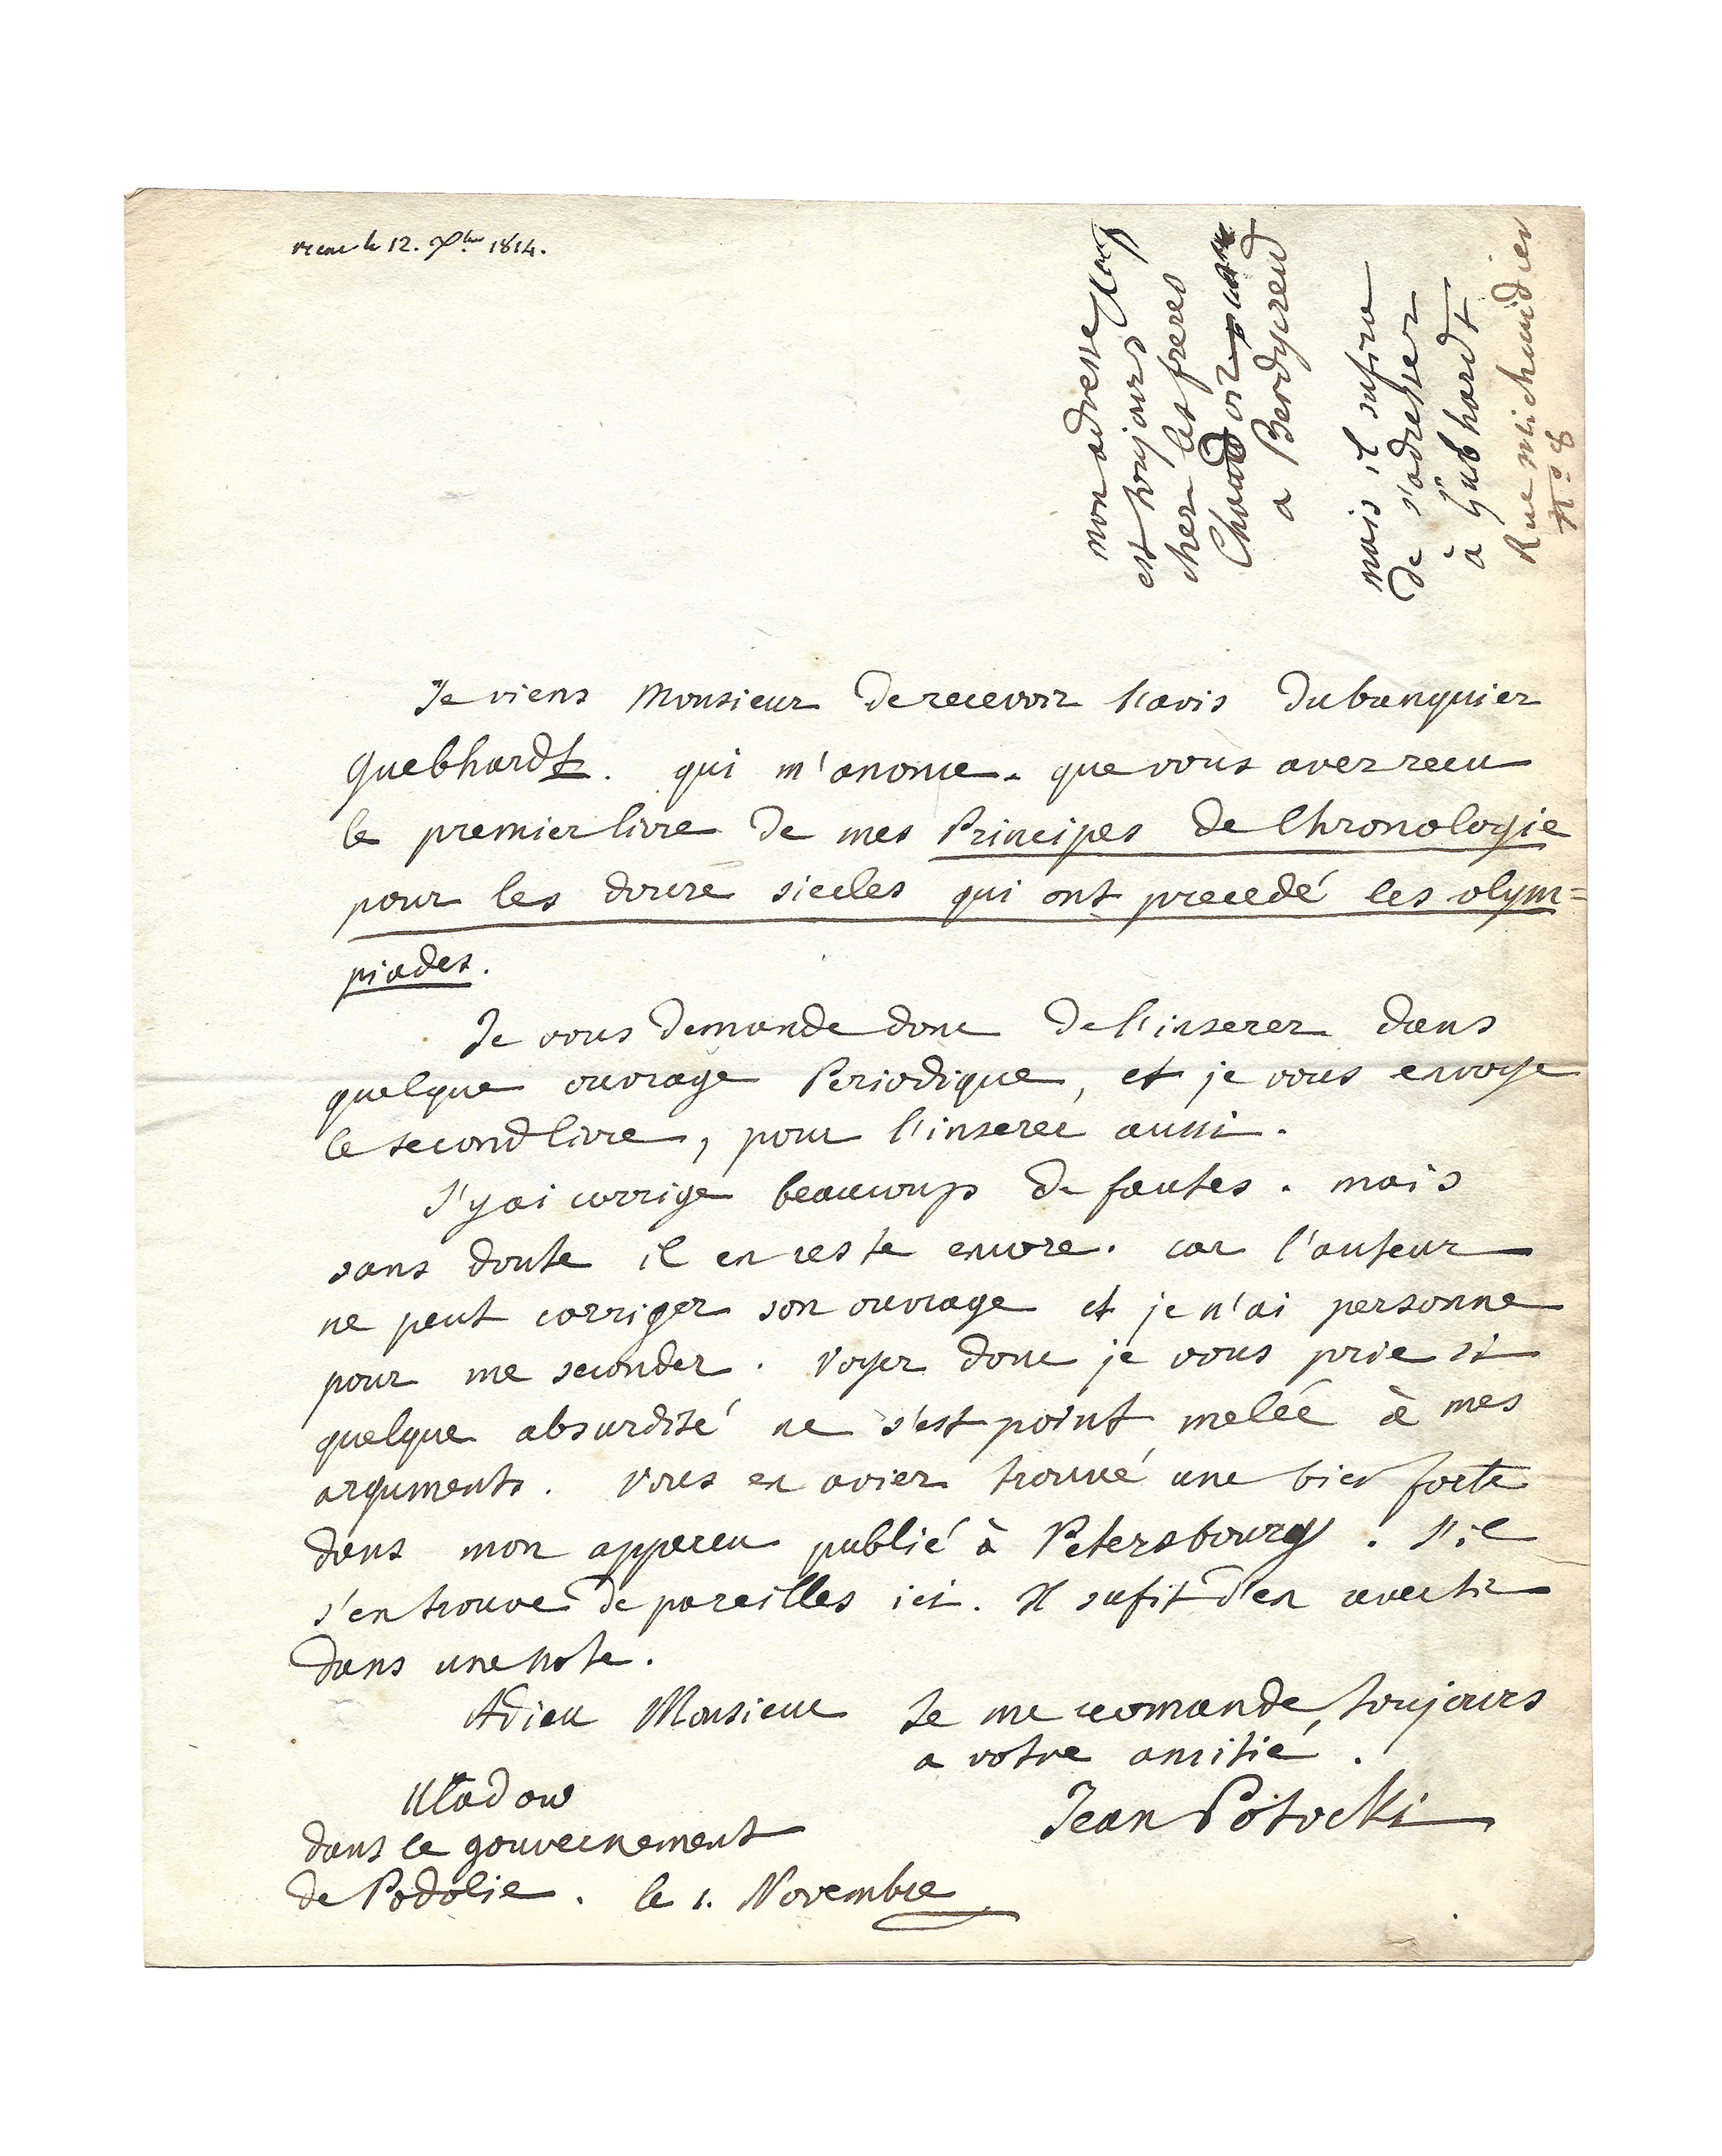 recue le 12. Xbre 1814.
mon adresse
est toujours
chez les freres
Chaudoir
a Berdyczew
mais il sufira
de s'adresser
à Guebhardt
Rue michaudier
N° 8
Je viens Monsieur de recevoir l'avis du banquier
Guebhardt. qui m'anonce. que vous avez recu
le premier livre de mes Principes de Chronologie
pour les douze siecles qui ont precedé les olym=
piades.
Je vous demande donc de l'inserer dans
quelque ouvrage Periodique, et je vous envoye
le second livre, pour l'inserer aussi.
J'y ai corrigé beaucoup de fautes. mais
sans doute il en reste encore. car l'auteur
ne peut corriger son ouvrage et je n'ai personne
pour me seconder. Voyez donc je vous prie si
quelque absurdité ne s'est point meleé à mes
arguments. Vous en aviez trouvé une bien forte
dans mon appercu publié à Petersbourg. S'il
s'en trouve de pareilles ici. Il sufit d'en avertir
dans une note.
Adieu Monsieur Je me recomande toujours
a votre amitié.
Uladow
Jean Potocki
dans le gouvernement
de Podolie. le 1. Novembre